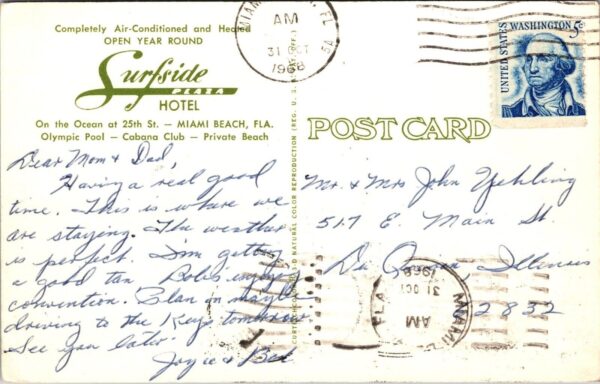 Completely Air-Conditioned and Heated
OPEN YEAR ROUND
Surfside
PLAZA
HOTEL
On the Ocean at 25th St. — MIAMI BEACH, FLA.
Olympic Pool — Cabana Club — Private Beach
Dear Mom & Dad,
Having a real good
time. This is where we
are staying. The weather
is perfect. I'm getting
a good tan. Bob's enjoying
convention. Plan on maybe
driving to the Keys tomorrow.
See you later
Joyce & Bob
NATURAL COLOR REPRODUCTION
MIAMI FL
AM
31 OCT
1968
UNITED STATES
WASHINGTON 5c
POST CARD
Mr. & Mrs John Yehling
517 E. Main St.
Du Quoin, Illinois
2832
MIAMI
FLA
AM
31 OCT
1968